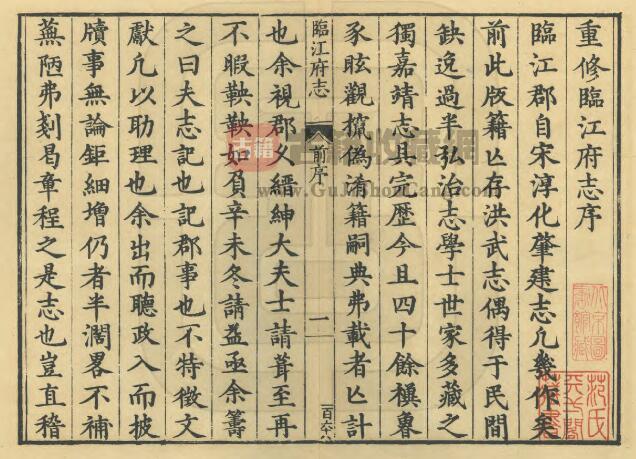 重修臨江府志序
臨江郡自宋淳化肇建志凡幾作矣
前此版籍亾存洪武志偶得于民間
缺逸過半弘治志學士世家多藏之
獨嘉靖志具完歷今且四十餘櫝魯
豕眩觀攛偽淆籍嗣典弗載者亾計
臨江府志
前序
一
百六八
也余視郡乂縉紳大夫士請葺至再
不暇鞅鞅如負辛未冬請益亟余籌
之曰夫志記也記郡事也不特徵文
獻凢以助理也余出而聽政入而披
牘事無論鉅細增仍者半濶畧不補
蕪陋弗剗曷章程之是志也豈直稽
古籍收藏網
www.GuJiShouCang.com
范氏
天一閣
藏書